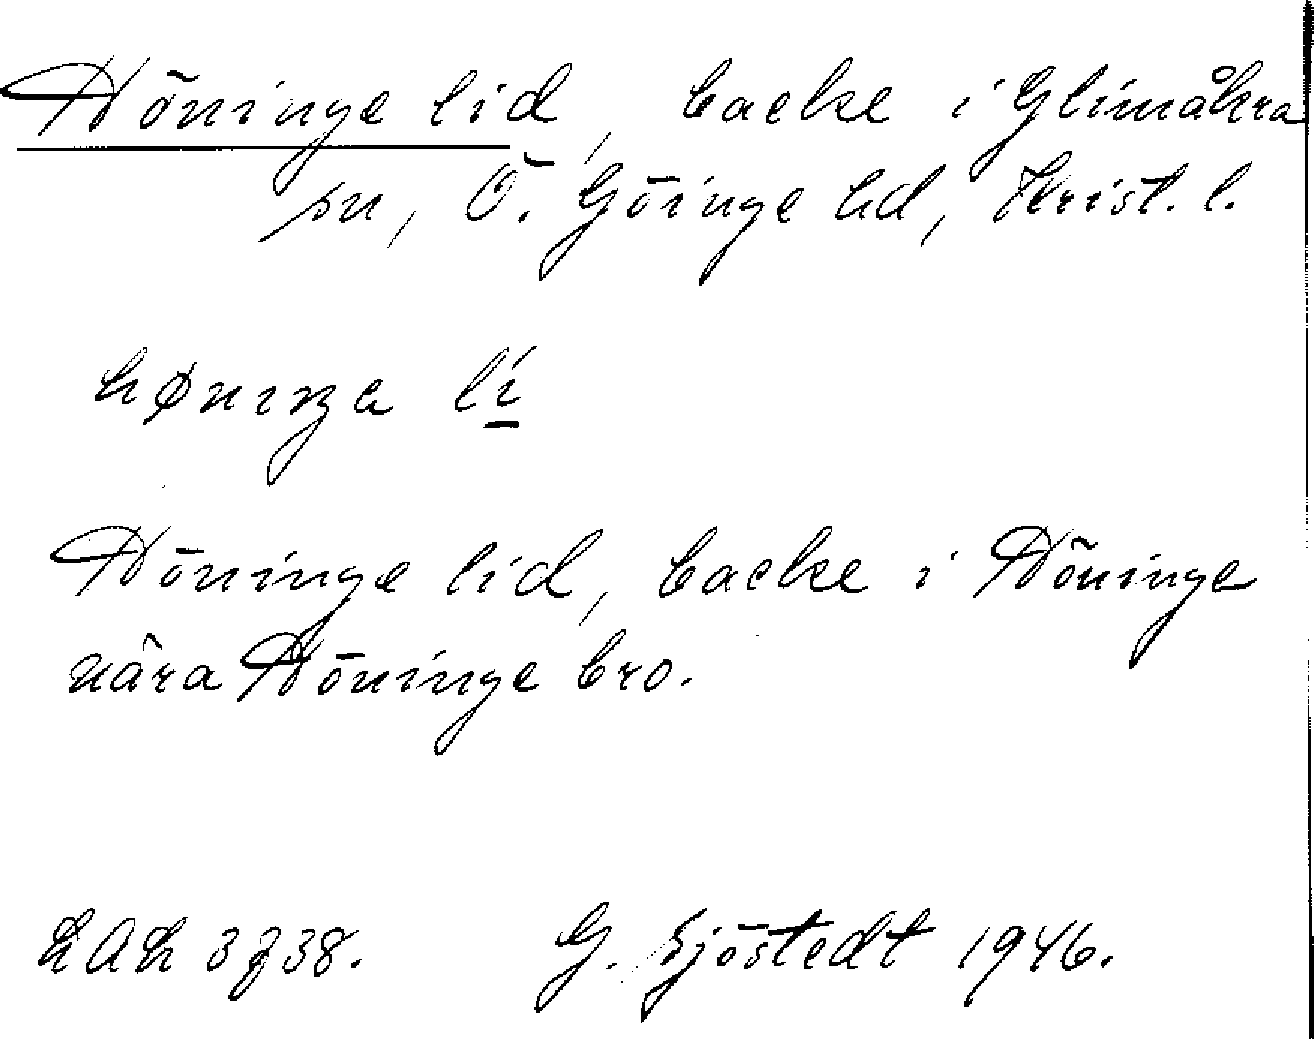 Höninge lid, backe i Glimåkra
sn, Ö. Göinge hd, Krist. l.
hønıŋa lí
Höninge lid, backe i Höninge
nära Höninge bro.
LAL 3738.   G. Sjöstedt 1946.